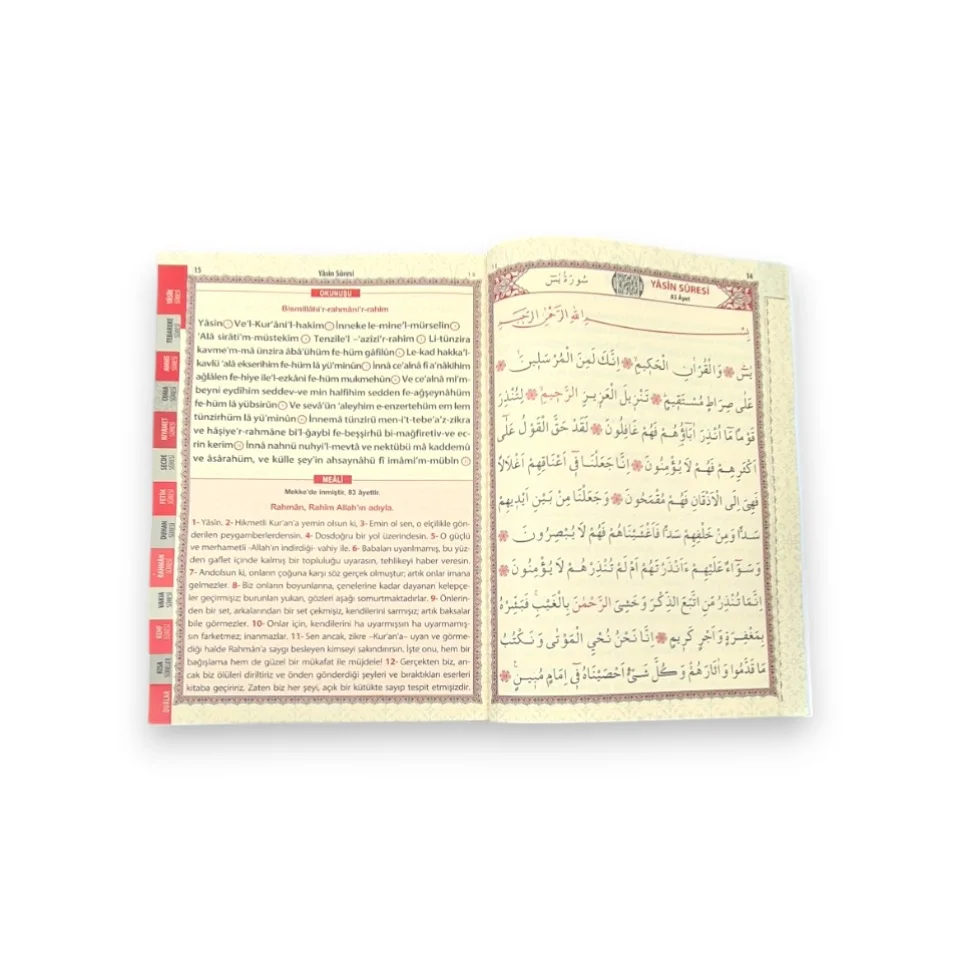 15
Yâsîn Sûresi
OKUNUŞU
Bismillâhi'r-rahmâni'r-rahîm
Yâsîn Ve'l-Kur'âni'l-hakîm İnneke le-mine'l-mürselîn
'Alâ sirâti'm-müstekîm Tenzîle'l-'azîzi'r-rahîm Li-tünzira
kavme'm-mâ ünzira âbâ'ühüm fe-hüm gâfilûn Le-kad hakka'l-
kavlü 'alâ ekserihim fe-hüm lâ yü'minûn İnnâ ce'alnâ fî a'nâkihim
ağlâlen fe-hiye ile'l-ezkâni fe-hüm mukmehûn Ve ce'alnâ mi'm-
beyni eydîhim seddev-ve min halfihim sedden fe-ağşeynâhüm
fe-hüm lâ yübsirûn Ve sevâ'ün 'aleyhim e-enzertehüm em lem
tünzirhüm lâ yü'minûn İnnemâ tünziru meni't-tebe'a'z-zikra
ve haşiye'r-rahmâne bi'l-ğaybi fe-beşşirhü bi-mağfiretiv-ve ec-
rin kerîm İnnâ nahnü nuhyi'l-mevtâ ve nektübü mâ kaddemû
ve âsârahüm, ve külle şey'in ahsaynâhü fî imâmi'm-mübîn
MEÂLİ
Mekke'de inmiştir, 83 âyettir.
Rahmân, Rahîm Allah'ın adıyla.
1- Yâsîn, 2- Hikmetli Kur'an'a yemin olsun ki, 3- Emin ol sen, o elçilikle gön-
derilen peygamberlerdensin. 4- Dosdoğru bir yol üzerindesin. 5- O güçlü
ve merhametli -Allah'ın indirdiği- vahiy ile. 6- Babaları uyarılmamış, bu yüz-
den gaflet içinde kalmış bir topluluğu uyarasın, tehlikeyi haber veresin.
7- Andolsun ki, onların çoğuna karşı söz gerçek olmuştur; artık onlar imana
gelmezler. 8- Biz onların boyunlarına, çenelerine kadar dayanan kelepçe-
ler geçirmişiz; burunları yukarı, gözleri aşağı somurtmaktadırlar. 9- Önlerin-
den bir set, arkalarından bir set çekmişiz, kendilerini sarmışız; artık baksalar
bile görmezler. 10- Onlar için, kendilerini ha uyarmışsın ha uyarmamış-
sın farketmez; inanmazlar. 11- Sen ancak, zikre –Kur'an'a– uyan ve görme-
diği halde Rahmân'a saygı besleyen kimseyi sakındırırsın. İşte onu, hem bir
bağışlama hem de güzel bir mükafat ile müjdele! 12- Gerçekten biz, an-
cak biz ölüleri diriltiriz ve önden gönderdiği şeyleri ve bıraktıkları eserleri
kitaba geçiririz. Zaten biz her şeyi, açık bir kütükte sayıp tespit etmişizdir.
YÂSÎN SÛRESİ
TEBAREKE SÛRESİ
AMME SÛRESİ
CUMA SÛRESİ
KIYAMET SÛRESİ
SECDE SÛRESİ
FETİH SÛRESİ
DUHAN SÛRESİ
RAHMÂN SÛRESİ
VAKIA SÛRESİ
KEHF SÛRESİ
KISA SÛRELER
DUALAR
سُورَةُ يٰسٓ
YÂSÎN SÛRESİ
83 Âyet
بِسْمِ اللّٰهِ الرَّحْمٰنِ الرَّحِيمِ
يٰسٓ وَالْقُرْاٰنِ الْحَكِيمِ اِنَّكَ لَمِنَ الْمُرْسَلِينَ
عَلٰى صِرَاطٍ مُسْتَقِيمٍ تَنْزِيلَ الْعَزِيزِ الرَّحِيمِ لِتُنْذِرَ
قَوْمًا مَٓا اُنْذِرَ اٰبَٓاؤُ۬هُمْ فَهُمْ غَافِلُونَ لَقَدْ حَقَّ الْقَوْلُ عَلٰٓى
اَكْثَرِهِمْ فَهُمْ لَا يُؤْمِنُونَ اِنَّا جَعَلْنَا فِٓى اَعْنَاقِهِمْ اَغْلَالًا
فَهِيَ اِلَى الْاَذْقَانِ فَهُمْ مُقْمَحُونَ وَجَعَلْنَا مِنْ بَيْنِ اَيْدِيهِمْ
سَدًّا وَمِنْ خَلْفِهِمْ سَدًّا فَاَغْشَيْنَاهُمْ فَهُمْ لَا يُبْصِرُونَ
وَسَوَٓاءٌ عَلَيْهِمْ ءَاَنْذَرْتَهُمْ اَمْ لَمْ تُنْذِرْهُمْ لَا يُؤْمِنُونَ
اِنَّمَا تُنْذِرُ مَنِ اتَّبَعَ الذِّكْرَ وَخَشِيَ الرَّحْمٰنَ بِالْغَيْبِ فَبَشِّرْهُ
بِمَغْفِرَةٍ وَاَجْرٍ كَرِيمٍ اِنَّا نَحْنُ نُحْيِ الْمَوْتٰى وَنَكْتُبُ
مَا قَدَّمُوا وَاٰثَارَهُمْ وَكُلَّ شَيْءٍ اَحْصَيْنَاهُ فِٓى اِمَامٍ مُبِينٍ